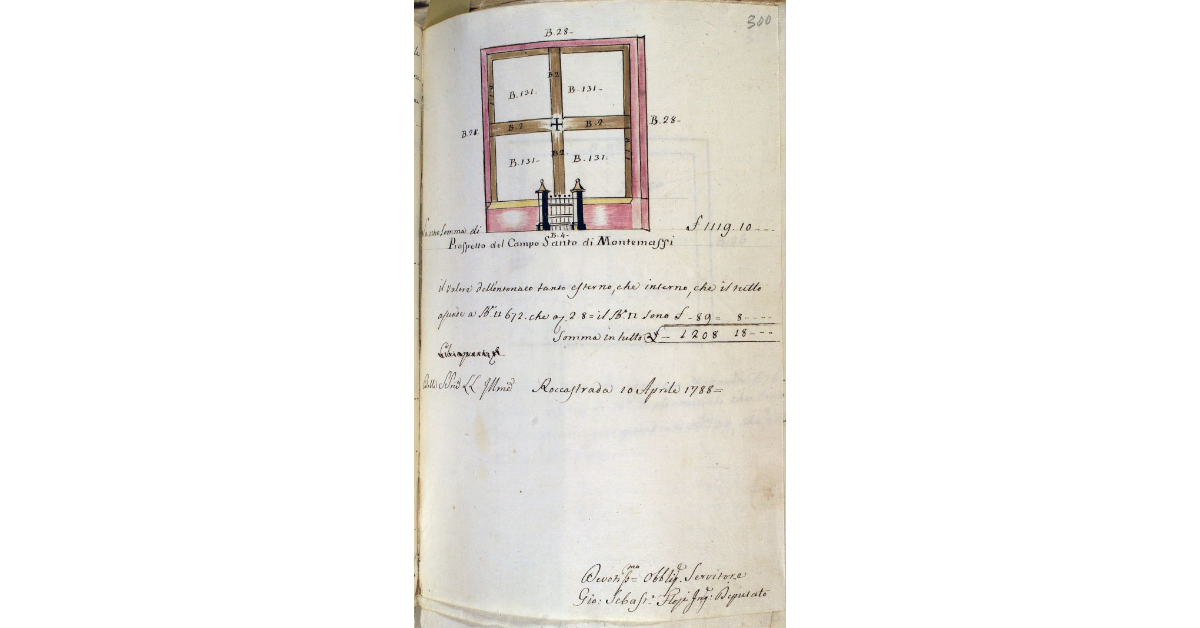 300
B. 28-
B. 2
B. 131.
B. 131-
B. 28.
B. 2
B. 2
B. 28-
B. 131-
B. 2
B. 131.
B. 4-
somma di
ƒ 1119. 10 ---
Prospetto del Campo Santo di Montemassi
il valore dell'intonaco tanto esterno, che interno, che il tutto
a Bª. 672. che a 28 = il Bª. sono ƒ - 89 = 8 ----
Somma in tutto ƒ - 1208 18 ---
Delle LL Illme Roccastrada 10 Aprile 1788 =
Devotissmo = Obblig. Servitore
Gio: Sebast. Ing: Deputato